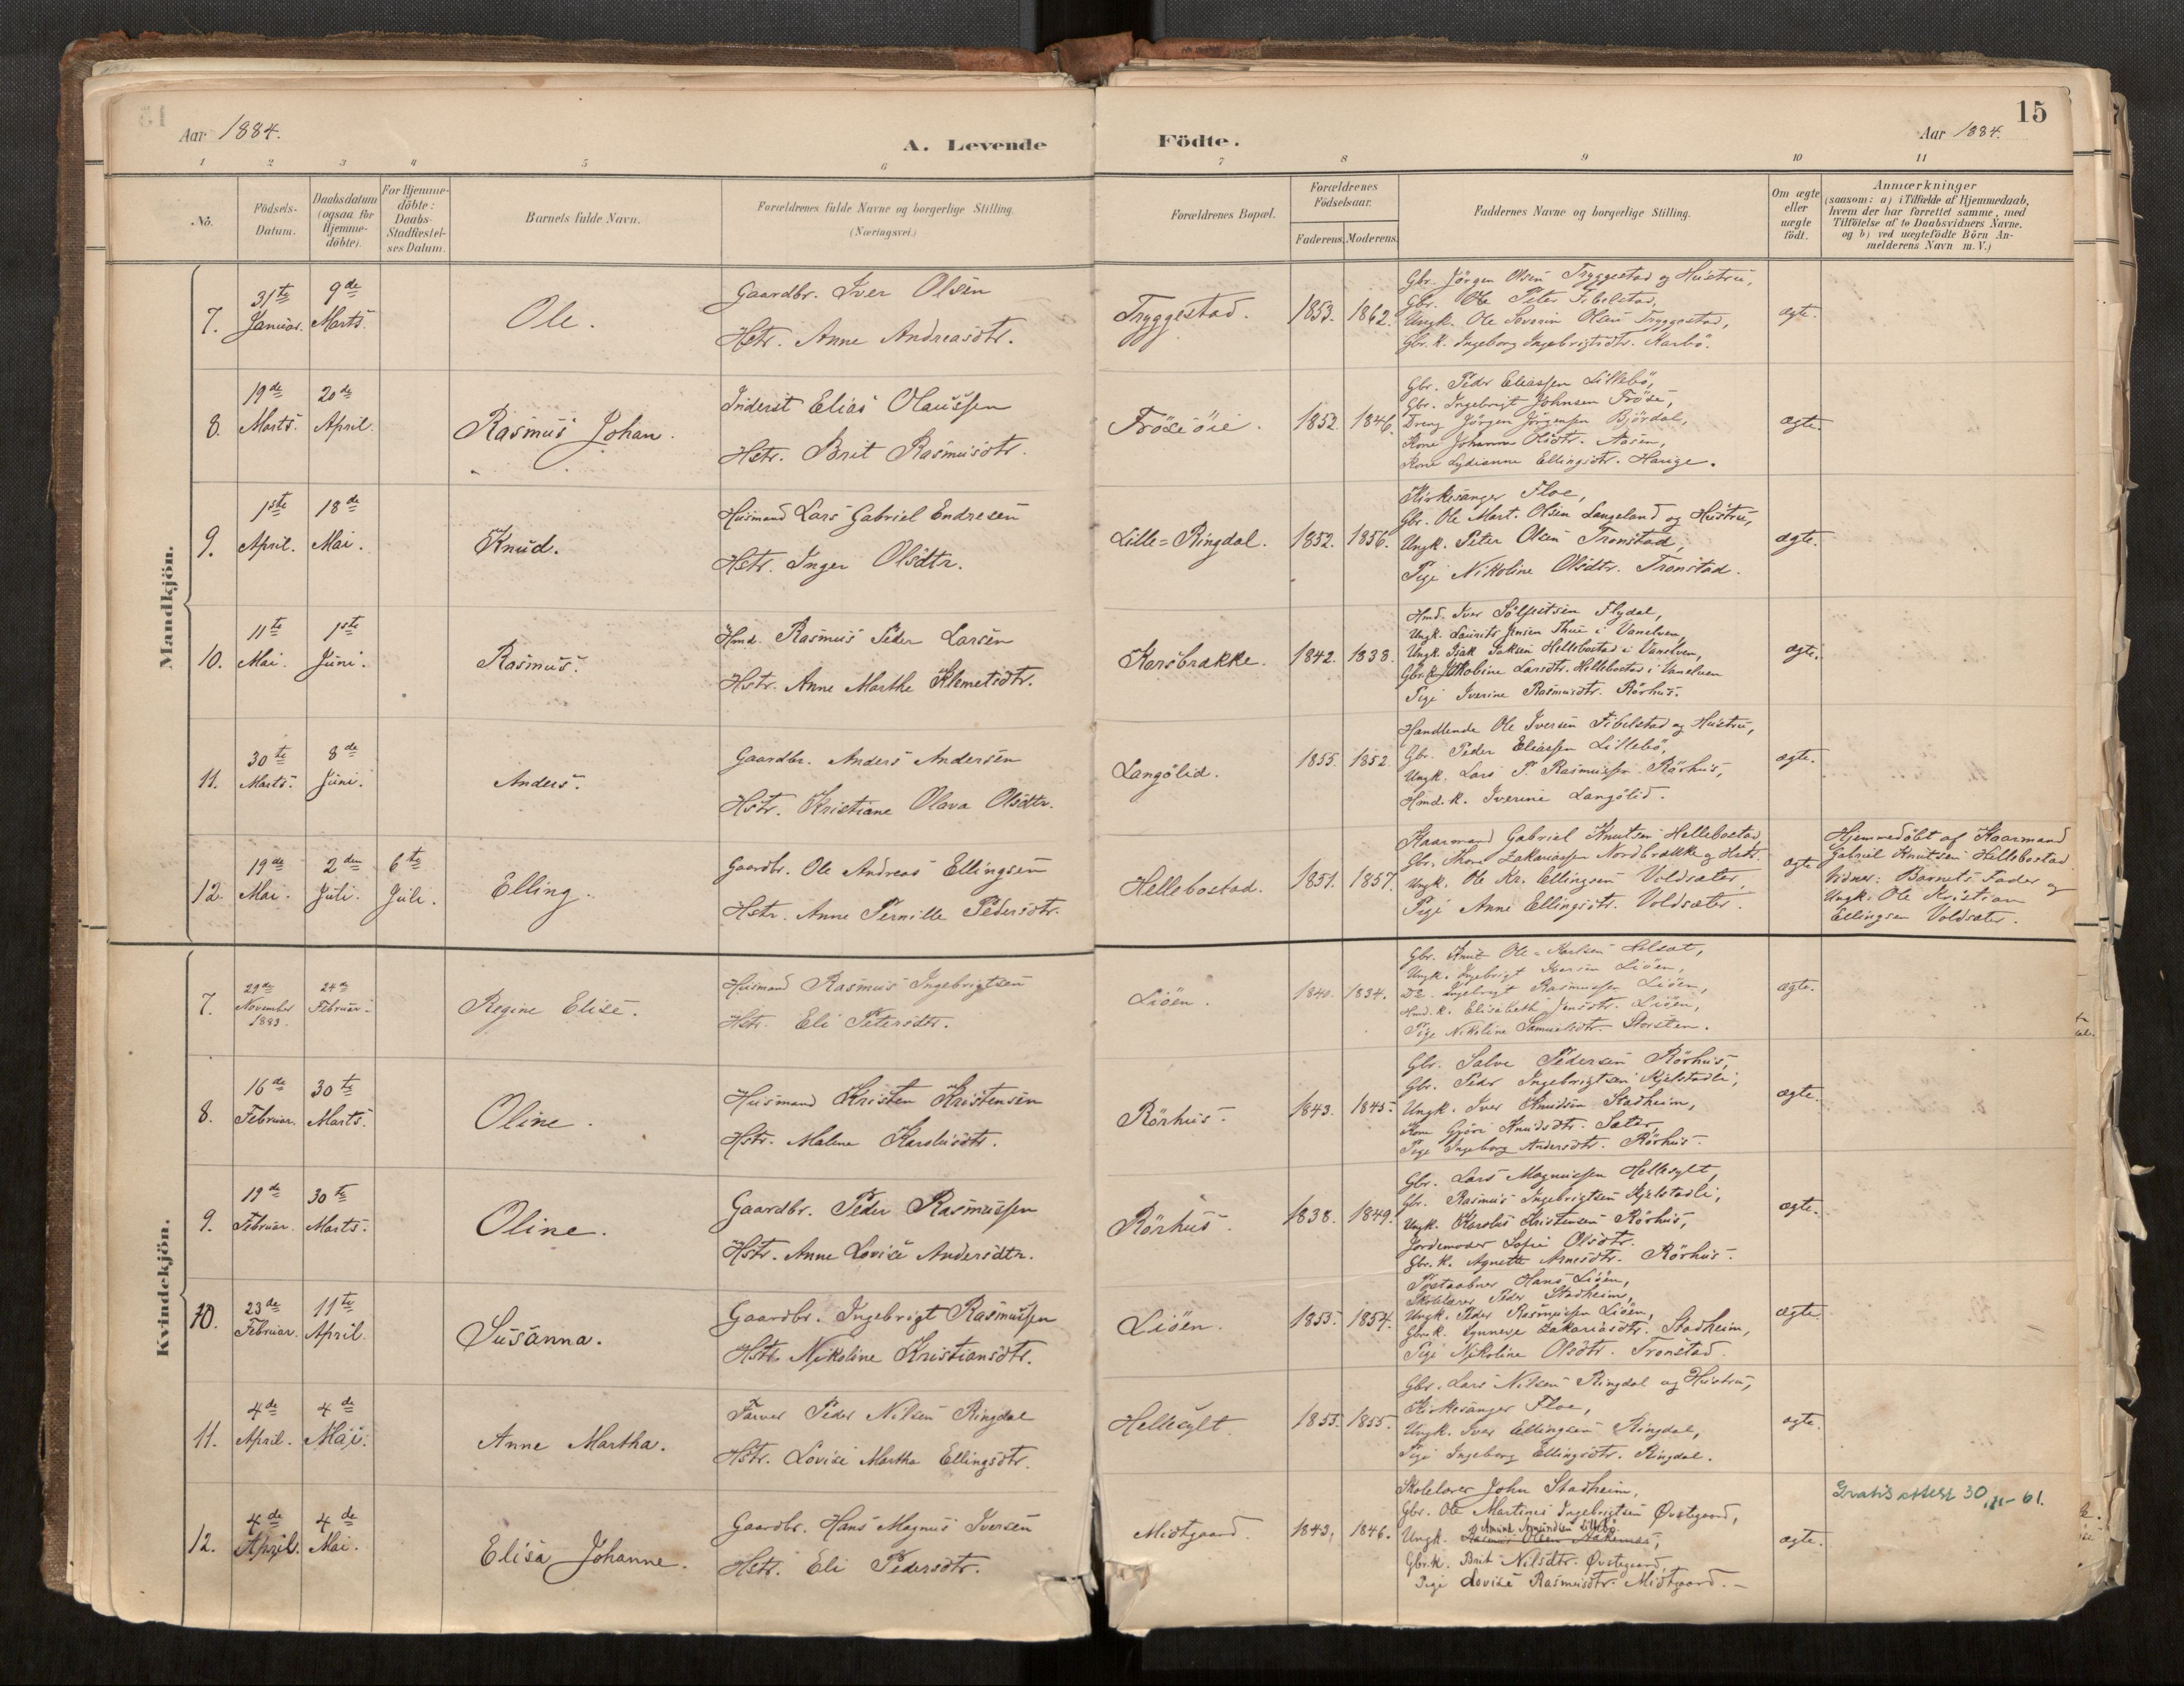 15
Aar 1884.
A. Levende Födte.
Aar 1884.
1 2 3 4 5 6 7 8 9 10 11
No.
Födsels-
Datum.
Daabsdatum
(ogsaa for
Hjemme-
döbte).
For Hjemme-
döbte:
Daabs-
Stadfæstel-
ses Datum.
Barnets fulde Navn.
Forældrenes fulde Navne og borgerlige Stilling
(Næringsvei.)
Forældrenes Bopæl.
Forældrenes
Födselsaar.
Faderens. Moderens.
Faddernes Navne og borgerlige Stilling.
Om ægte
eller
uægte
födt.
Anmærkninger
(saasom: a) i Tilfælde af Hjemmedaab,
hvem der har forrettet samme, med
Tilföielse af to Daabsvidners Navne.
og b) ved uægtefödte Börn An-
melderens Navn m.V.)
Mandkjön.
7.
31te
Januar.
9de
Marts.
Ole.
Gaardbr. Iver Olsen
Hstr. Anne Andreasdtr.
Tryggestad.
1853. 1862.
Gbr. Jörgen Olsen Tryggestad og Hustru,
Gbr. Ole Peter Fibelstad,
Ungk. Ole Severin Olsen Tryggestad,
Gbr. K. Ingeborg Ingebrigtsdtr. Karbö.
ægte.
8.
19de
Marts.
20de
April.
Rasmus Johan.
Inderst Elias Olaussen
Hstr. Brit Rasmusdtr.
Fröseöie.
1852. 1846.
Gbr. Peder Eliassen Lillebö,
Gbr. Ingebrigt Johnsen Fröse,
Dreng Jörgen Jörgensen Björdal,
Kone Johanne Olsdtr. Aasen,
Kone Lydianne Ellingsdtr. Hauge.
ægte.
9.
1ste
April.
18de
Mai.
Knud.
Husmand Lars Gabriel Endresen
Hstr. Inger Olsdtr.
Lille=Ringdal.
1852. 1856.
Kirkesanger Floe,
Gbr. Ole Mart. Olsen Langeland og Hustru,
Ungk. Peter Olsen Tronstad,
Pige Nikoline Olsdtr. Tronstad.
ægte.
10.
11te
Mai.
1ste
Juni.
Rasmus.
Hmd. Rasmus Peder Larsen
Hstr. Anne Marthe Klemetsdtr.
Korsbrække.
1842. 1838.
Hmd. Iver Sölfestsen Flydal,
Ungk. Laurits Jensen Thue i Vanelven,
Ungk. Isak Saksen Hellebostad i Vanelven,
Gbr. K. Jakobine Larsdtr. Hellebostad i Vanelven
Pige Iverine Rasmusdtr. Rörhus.
ægte.
11.
30te
Marts.
8de
Juni.
Anders.
Gaardbr. Anders Andersen
Hstr. Kristiane Olava Olsdtr.
Langölid.
1855. 1852.
Handlende Ole Iversen Fibelstad og Hustru,
Gbr. Peder Eliassen Lillebö,
Ungk. Lars P. Rasmussen Rörhus,
Hmd. K. Iverine Langölid.
ægte.
12.
19de
Mai.
2den
Juli.
6te
Juli.
Elling.
Gaardbr. Ole Andreas Ellingsen
Hstr. Anne Pernille Pedersdtr.
Hellebostad.
1851. 1857.
Kaarmand Gabriel Knutsen Hellebostad
Gbr. Thore Zakariassen Nordbrække og Hstr.
Ungk. Ole Kr. Ellingsen Voldsæter,
Pige Anne Ellingsdtr. Voldsæter.
ægte
Hjemmedöbt af Kaarmand
Gabriel Knutsen Hellebostad
Vidner: Barnets Fader og
Ungk. Ole Kristian
Ellingsen Voldsæter.
Kvindekjön.
7.
29de
November
1883.
24de
Februar.
Regine Elise.
Husmand Rasmus Ingebrigtsen
Hstr. Eli Petersdtr.
Liöen.
1840. 1834.
Gbr. Knut Ole=Karlsen Helset,
Ungk. Ingebrigt Iversen Liöen,
Do. Ingebrigt Rasmussen Liöen,
Hmd. K. Elisabeth Jensdtr. Liöen,
Pige Nikoline Samuelsdtr. Storsten.
ægte.
8.
16de
Februar.
30te
Marts.
Oline.
Husmand Kristen Kristensen
Hstr. Malene Karolusdtr.
Rörhus.
1843. 1845.
Gbr. Salve Pedersen Rörhus,
Gbr. Peder Ingebrigtsen Kjelstadli,
Ungk. Iver Knudsen Stadheim,
Kone Gjöri Knudsdtr. Sæter,
Pige Ingeborg Andersdtr. Rörhus.
ægte.
9.
19de
Februar.
30te
Marts.
Oline.
Gaardbr. Peder Rasmussen
Hstr. Anne Lovise Andersdtr.
Rörhus.
1838. 1849.
Gbr. Lars Magnussen Hellesylt,
Gbr. Rasmus Ingebrigtsen Kjelstadli,
Ungk. Karolus Kristensen Rörhus,
Jordemoder Sofie Olsdtr.
Gbr. K. Agnethe Arnesdtr. Rörhus.
ægte.
10.
23de
Februar.
11te
April.
Susanna.
Gaardbr. Ingebrigt Rasmussen
Hstr. Nikoline Kristiansdtr.
Liöen.
1855. 1854.
Postaabner Hans Liöen,
Skolelærer Peder Stadheim,
Ungk. Peder Rasmussen Liöen,
Gbr. K. Synneve Zakariasdtr. Stadheim,
Pige Nikoline Olsdtr. Tronstad.
ægte.
11.
4de
April.
4de
Mai.
Anne Martha.
Farver Peder Nilsen Ringdal
Hstr. Lovise Martha Ellingsdtr.
Hellesylt.
1855. 1855.
Gbr. Lars Nilsen Ringdal og Hustru,
Kirkesanger Floe,
Ungk. Iver Ellingsen Ringdal,
Pige Ingeborg Ellingsdtr. Ringdal.
ægte.
12.
4de
April.
4de
Mai.
Elisa Johanne.
Gaardbr. Hans Magnus Iversen
Hstr. Eli Pedersdtr.
Midtgaard.
1843. 1846.
Skolelærer John Stadheim,
Gbr. Ole Martines Ingebrigtsen Øvstegaard,
Amund Amundsen Lillebö.
Ungk. Rasmus Olsen
Gbr. K. Brit Nilsdtr. Øvstegaard,
Pige Lovise Rasmusdtr. Midtgaard.
ægte.
Gratis attest 30/11-61.